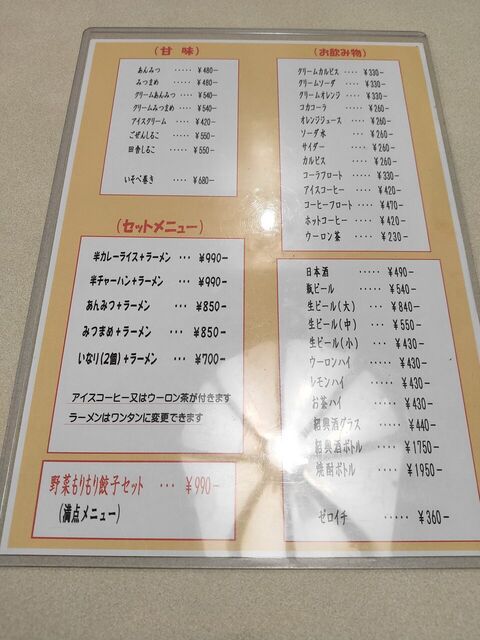 (甘 味)
あんみつ ····· ¥480-
みつまめ ····· ¥480-
クリームあんみつ ··· ¥540-
クリームみつまめ ··· ¥540-
アイスクリーム ···· ¥420-
ごぜんしるこ ···· ¥550-
田舎しるこ ···· ¥550-
いそべ巻き ···· ¥680-
(セットメニュー)
半カレーライス+ラーメン ··· ¥990-
半チャーハン+ラーメン ··· ¥990-
あんみつ+ラーメン ···· ¥850-
みつまめ+ラーメン ···· ¥850-
いなり(2個)+ラーメン ··· ¥700-
アイスコーヒー又はウーロン茶が付きます
ラーメンはワンタンに変更できます
野菜もりもり餃子セット ··· ¥990-
(満点メニュー)
(お飲み物)
クリームカルピス ··· ¥330-
クリームソーダ ···· ¥330-
クリームオレンジ ··· ¥330-
コカコーラ ····· ¥260-
オレンジジュース ···· ¥260-
ソーダ水 ····· ¥260-
サイダー ····· ¥260-
カルピス ····· ¥260-
コーラフロート ···· ¥330-
アイスコーヒー ···· ¥420-
コーヒーフロート ··· ¥470-
ホットコーヒー ···· ¥420-
ウーロン茶 ···· ¥230-
日本酒 ····· ¥490-
瓶ビール ····· ¥540-
生ビール(大) ···· ¥840-
生ビール(中) ···· ¥550-
生ビール(小) ···· ¥430-
ウーロンハイ ···· ¥430-
レモンハイ ····· ¥430-
お茶ハイ ····· ¥430-
紹興酒グラス ···· ¥440-
紹興酒ボトル ···· ¥1750-
焼酎ボトル ···· ¥1950-
ゼロイチ ····· ¥360-